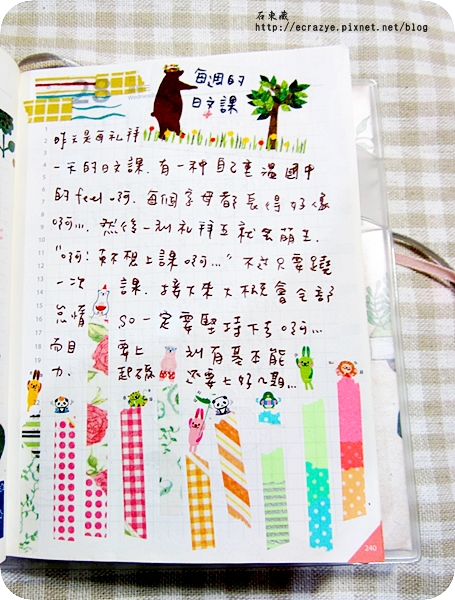 石東藏
http://ecrazye.pixnet.net/blog
28
Wednesday
每週的
日文課
昨天是每礼拜
一天的日文課．有一种自己重溫國中
的feel啊．每個字母都長得好像
啊…．然後一到礼拜五就會萌生．
"啊！不想上課啊…" 不过只要蹺
一次 課．接下來大概會全部
怠惰 so一定要堅持下去啊…
而且 要上 到有基本能
力． 起碼 还要七好幾期…
240